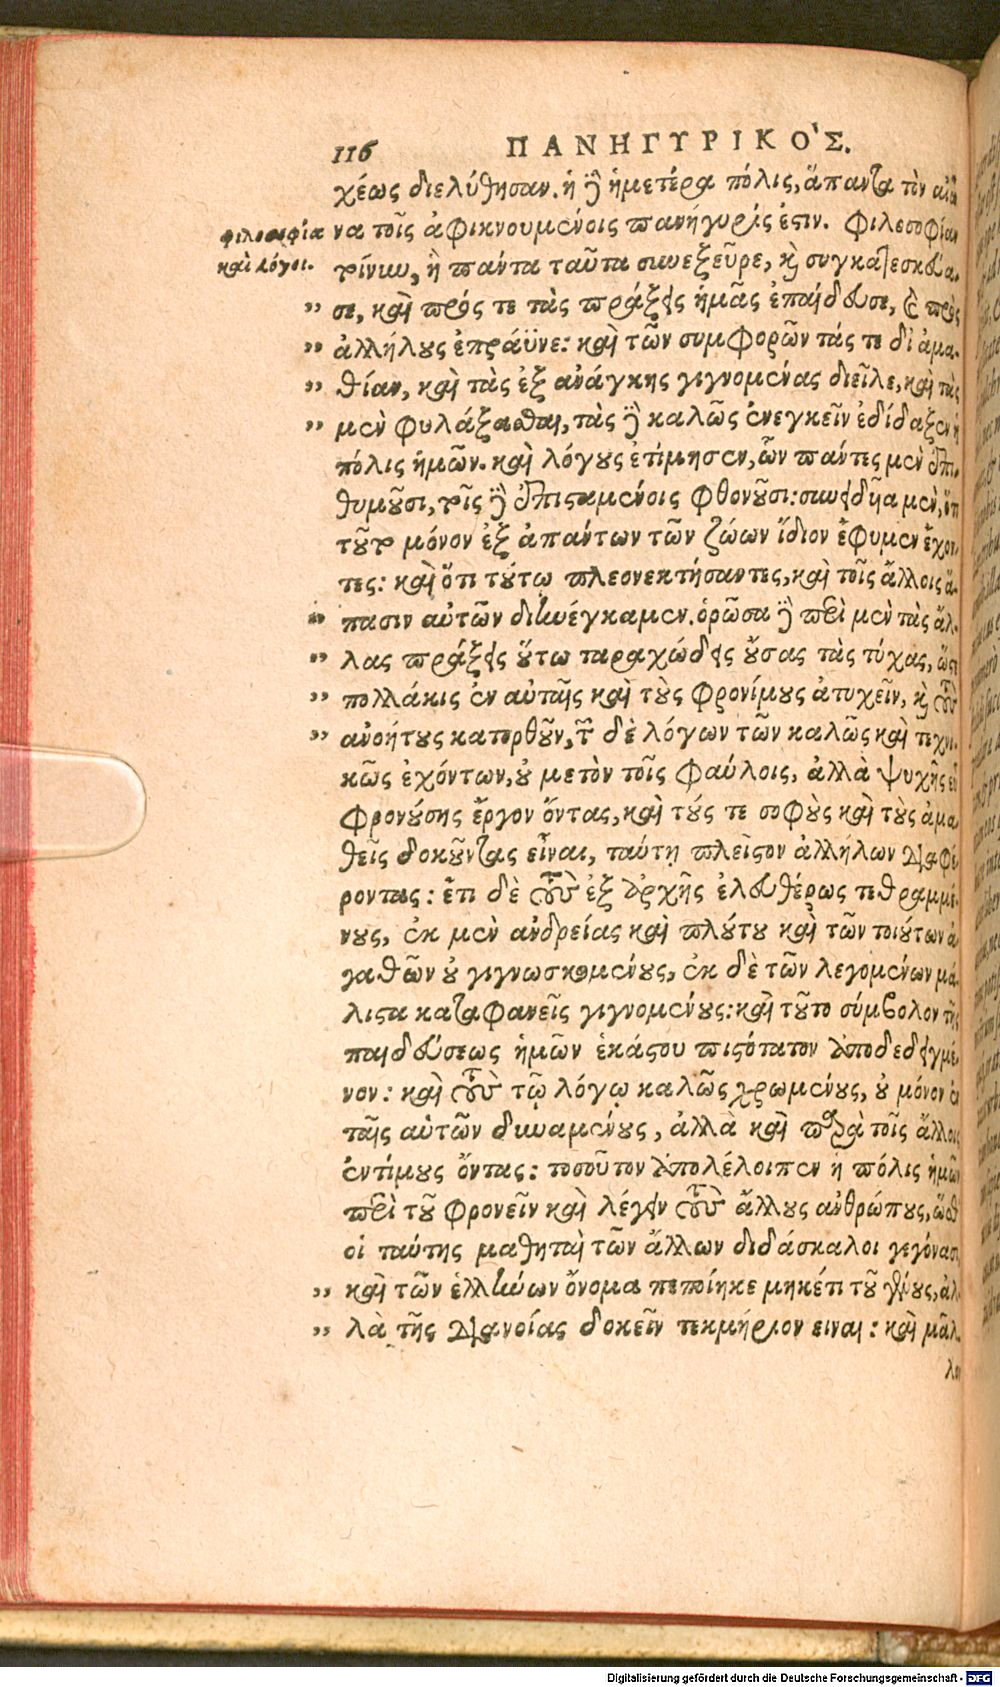 116 ΠΑΝΗΓΥΡΙΚΟ'Σ.
χέως διελύθησαν. ἡ δὲ ἡμετέρα πόλις, ἅπαντα τὸν αἰῶ
φιλοσοφία να τοῖς ἀφικνουμένοις πανήγυρίς ἐστιν. Φιλεσοφίαν
καὶ λόγοι. τοίνυν, ἣ πάντα ταῦτα συνεξεῦρε, καὶ συγκατεσκεύα-
„ σε, καὶ πρός τε τὰς πράξεις ἡμᾶς ἐπαίδευσε, καὶ πρὸς
„ ἀλλήλους ἐπράϋνε: καὶ τῶν συμφορῶν τάς τε δι' ἀμα-
„ θίαν, καὶ τὰς ἐξ ἀνάγκης γιγνομένας διεῖλε, καὶ τὰς
„ μὲν φυλάξασθαι, τὰς δὲ καλῶς ἐνεγκεῖν ἐδίδαξεν ἡ
πόλις ἡμῶν. καὶ λόγους ἐτίμησεν, ὧν πάντες μὲν ἐπι-
θυμοῦσι, τοῖς δὲ ἐπισταμένοις φθονοῦσι: συνειδῆα μὲν, ὅτι
τοῦτο μόνον ἐξ ἁπάντων τῶν ζώων ἴδιον ἔφυμεν ἔχον-
τες: καὶ ὅτι τούτω πλεονεκτήσαντες, καὶ τοῖς ἄλλοις ἅ-
„ πασιν αὐτῶν διηνέγκαμεν. ὁρῶσα δὲ περὶ μὲν τὰς ἄλ-
„ λας πράξεις οὕτω ταραχώδεις οὔσας τὰς τύχας, ὥστε
„ πολλάκις ἐν αὐταῖς καὶ τοὺς φρονίμους ἀτυχεῖν, καὶ τοὺς
„ ἀνοήτους κατορθοῦν, τῶν δὲ λόγων τῶν καλῶς καὶ τεχνι-
κῶς ἐχόντων, οὐ μετὸν τοῖς φαύλοις, ἀλλὰ ψυχῆς εὖ
φρονούσης ἔργον ὄντας, καὶ τούς τε σοφοὺς καὶ τοὺς ἀμα
θεῖς δοκοῦντας εἶναι, ταύτῃ πλεῖστον ἀλλήλων διαφέ-
ροντας: ἔτι δὲ τοὺς ἐξ ἀρχῆς ἐλευθέρως τεθραμμέ-
νους, ἐκ μὲν ἀνδρείας καὶ πλούτου καὶ τῶν τοιούτων ἀ
γαθῶν οὐ γιγνωσκομένους, ἐκ δὲ τῶν λεγομένων μά-
λιστα καταφανεῖς γιγνομένους: καὶ τοῦτο σύμβολον τῆς
παιδεύσεως ἡμῶν ἑκάστου πιστότατον ἀποδεδειγμέ-
νον: καὶ τοὺς τῷ λόγῳ καλῶς χρωμένους, οὐ μόνον ἐν
ταῖς αὑτῶν δυναμένους, ἀλλὰ καὶ παρὰ τοῖς ἄλλοις
ἐντίμους ὄντας: τοσοῦτον ἀπολέλοιπεν ἡ πόλις ἡμῶν
περὶ τοῦ φρονεῖν καὶ λέγειν τοὺς ἄλλους ἀνθρώπους, ὥσθ'
οἱ ταύτης μαθηταὶ τῶν ἄλλων διδάσκαλοι γεγόνασι
„ καὶ τῶν ἑλλήνων ὄνομα πεποίηκε μηκέτι τοῦ γένους, ἀλ-
„ λὰ τῆς διανοίας δοκεῖν τεκμήριον ειναι: καὶ μᾶλ-
λον
Digitalisierung gefördert durch die Deutsche Forschungsgemeinschaft - DFG